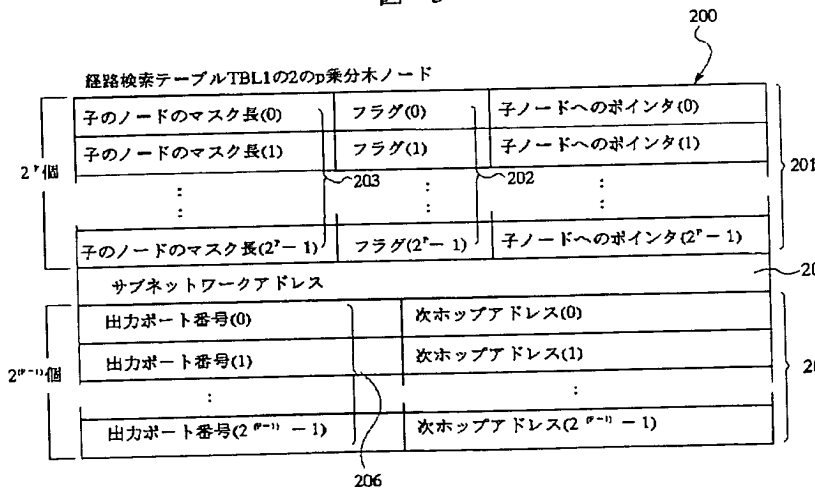 200
経路検索テーブルTBL1の2のp乗分木ノード
子のノードのマスク長(0) フラグ(0) 子ノードへのポインタ(0)
子のノードのマスク長(1) フラグ(1) 子ノードへのポインタ(1)
2^p個 203 202 201
: : :
子のノードのマスク長(2^p－1) フラグ(2^p－1) 子ノードへのポインタ(2^p－1)
サブネットワークアドレス
出力ポート番号(0) 次ホップアドレス(0)
出力ポート番号(1) 次ホップアドレス(1)
2^(p－1)個
: :
出力ポート番号(2^(p－1)－1) 次ホップアドレス(2^(p－1)－1)
206